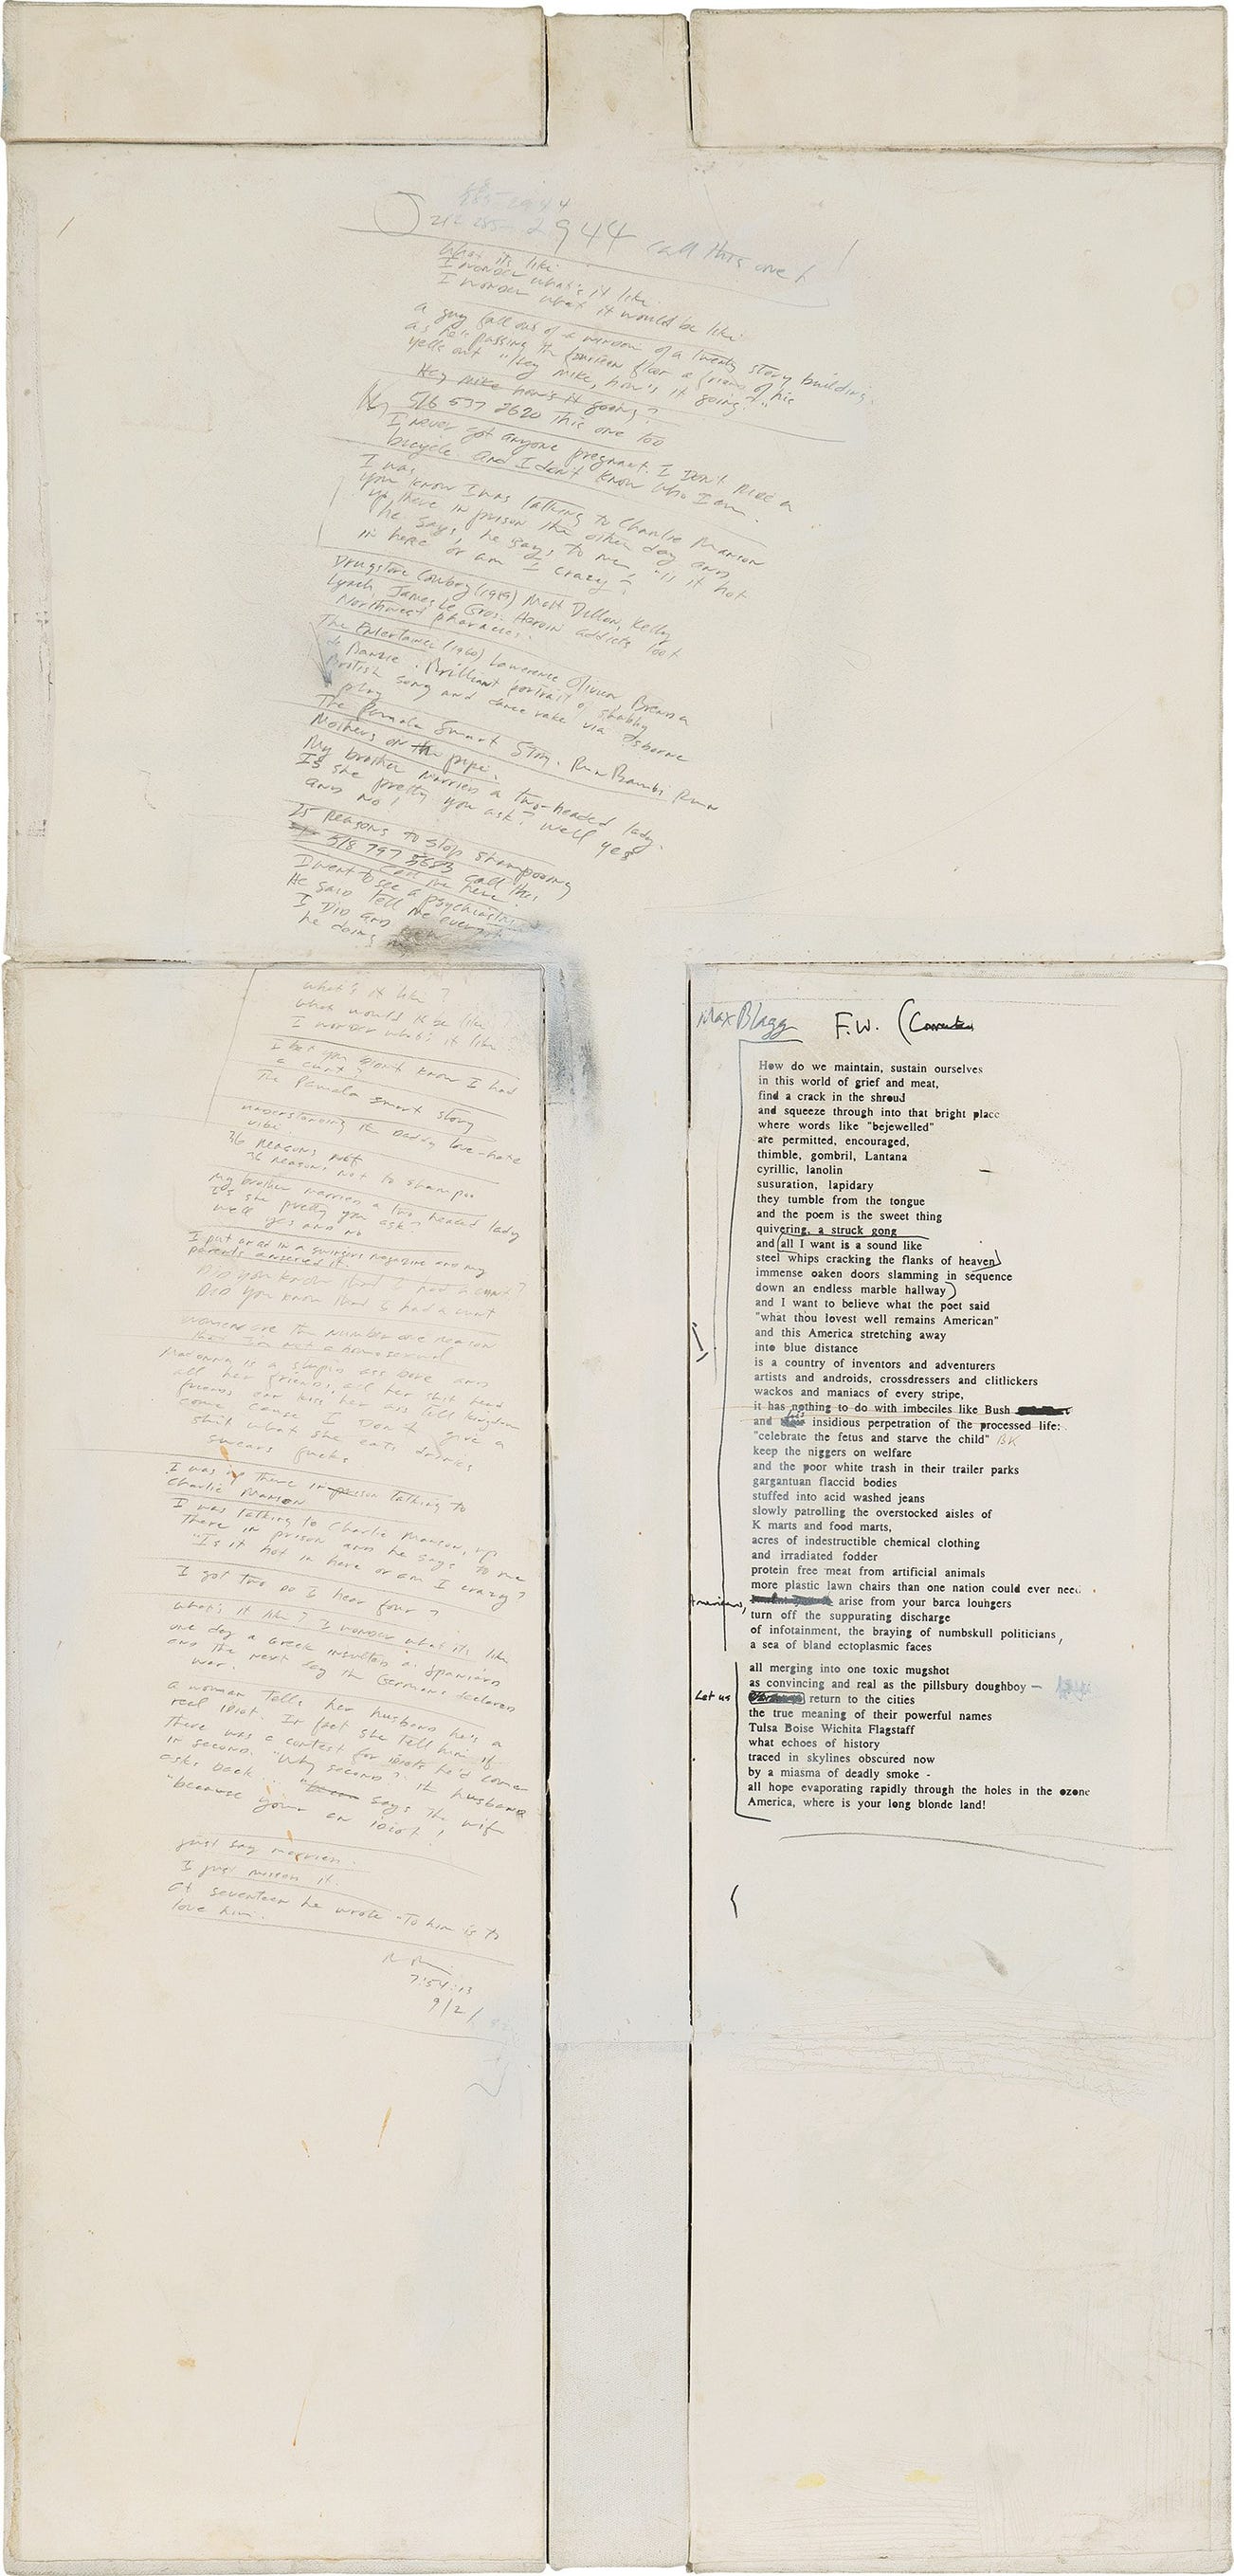 585-2944
212 285-2944 call this one!
What its like
I wonder what's it like.
I wonder what it would be like
a guy falls out of a window of a twenty story building.
as he's passing the fourteen floor a friend of his
yells out "Hey mike, how's it going?"
Hey mike how's it going?
516 537 2620 This one too
I never got anyone pregnant. I Don't Ride a
bicycle and I don't know who I am.
I was
you know I was talking to Charlie Manson
up there in prison the other day and
he says, he says to me, "is it hot
in here or am I crazy?
Drugstore Cowboy (1989) Matt Dillon, Kelly
Lynch, James Le Gros. Heroin addicts loot
Northwest pharmacies.
The Entertainer (1960) Lawrence Olivier, Brenda
de Banzie. Brilliant portrait of shabby
British song and dance via Osborne
play
The Pamela Smart Story. Run Bambi Run
Mothers on the pipe.
My brother married a two-headed lady.
Is she pretty you ask? Well yes
and no!
25 Reasons to stop shampooing
518 797 call this
call me here.
I went to see a psychiatrist
He said tell me everything
I Did and now
he doing my
what's it like?
what would it be like?
I wonder what's it like.
I bet you didnt know I had
a cunt?
The Pamala Smart story
understanding the Daddy love-hate
vibe
36 reasons not
36 reasons not to shampoo
My brother married a two headed lady
Is she pretty you ask?
well yes and no
I put an ad in a swingers magazine and my
parents answered it.
Did you know that I had a cunt?
Did you know that I had a cunt
women are the number one reason
that I'm not a homosexual
Madonna is a stupid ass bore and
all her friends, all her shit head
friends can kiss her ass till kingdom
come cause I Don't give a
shit what she eats drinks
swears fucks
I was up there in prison talking to
Charlie Manson
I was talking to Charlie Manson, up
there in prison and he says to me
"Is it hot in here or am I crazy?
I got two do I hear four?
what's it like? I wonder what its like
one day a Greek insulted a Spaniard
and the next day the Germans declared
war.
a woman tells her husband he's a
real idiot. In fact she tell him if
there was a contest for idiots he'd come
in second. "Why second? th husband
asks back... says the wife
"because your an idiot!
just say married.
I just missed it.
At seventeen he wrote -To him is to
love him.
7:54:13
9/2/
Max Blagg F.W. (
How do we maintain, sustain ourselves
in this world of grief and meat,
find a crack in the shroud
and squeeze through into that bright place
where words like "bejewelled"
are permitted, encouraged,
thimble, gombril, Lantana
cyrillic, lanolin
susuration, lapidary
they tumble from the tongue
and the poem is the sweet thing
quivering, a struck gong
and (all I want is a sound like
steel whips cracking the flanks of heaven)
immense oaken doors slamming in sequence
down an endless marble hallway)
and I want to believe what the poet said
"what thou lovest well remains American"
and this America stretching away
into blue distance
is a country of inventors and adventurers
artists and androids, crossdressers and clitlickers
wackos and maniacs of every stripe,
it has nothing to do with imbeciles like Bush
and his insidious perpetration of the processed life:
"celebrate the fetus and starve the child" BK
keep the niggers on welfare
and the poor white trash in their trailer parks
gargantuan flaccid bodies
stuffed into acid washed jeans
slowly patrolling the overstocked aisles of
K marts and food marts,
acres of indestructible chemical clothing
and irradiated fodder
protein free meat from artificial animals
more plastic lawn chairs than one nation could ever need
Americans, arise from your barca loungers
turn off the suppurating discharge
of infotainment, the braying of numbskull politicians,
a sea of bland ectoplasmic faces
all merging into one toxic mugshot
as convincing and real as the pillsbury doughboy —
Let us return to the cities
the true meaning of their powerful names
Tulsa Boise Wichita Flagstaff
what echoes of history
traced in skylines obscured now
by a miasma of deadly smoke -
all hope evaporating rapidly through the holes in the ozone
America, where is your long blonde land!